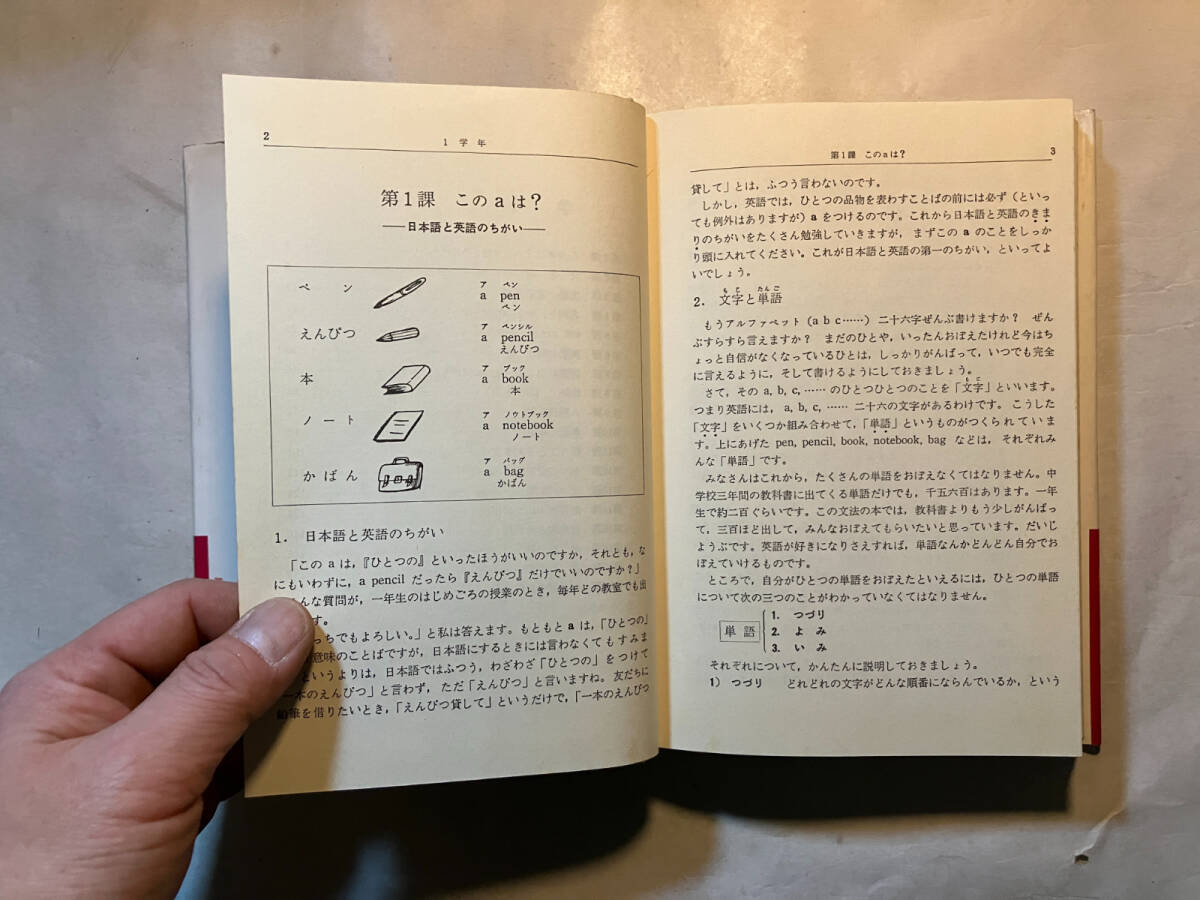 2
1 学 年
第1課 このaは?
——日本語と英語のちがい——
ペ ン
ア ペン
a pen
ペン
えんぴつ
ア ペンシル
a pencil
えんぴつ
本
ア ブック
a book
本
ノ ー ト
ア ノウトブック
a notebook
ノート
か ば ん
ア バッグ
a bag
かばん
1. 日本語と英語のちがい
「この a は,『ひとつの』といったほうがいいのですか, それとも, な
にもいわずに, a pencil だったら『えんぴつ』だけでいいのですか?」
んな質問が, 一年生のはじめごろの授業のとき, 毎年どの教室でも出
す。
っちでもよろしい。」と私は答えます。もともと a は,「ひとつの」
意味のことばですが, 日本語にするときには言わなくてもすみま
というよりは, 日本語ではふつう, わざわざ「ひとつの」をつけて
一本のえんぴつ」と言わず, ただ「えんぴつ」と言いますね。友だちに
鉛筆を借りたいとき,「えんぴつ貸して」というだけで,「一本のえんぴつ
第1課 このaは?
3
貸して」とは, ふつう言わないのです。
しかし, 英語では, ひとつの品物を表わすことばの前には必ず (といっ
ても例外はありますが) a をつけるのです。これから日本語と英語のきま
りのちがいをたくさん勉強していきますが, まずこの a のことをしっか
り頭に入れてください。これが日本語と英語の第一のちがい, といってよ
いでしょう。
もじ たんご
2. 文字と単語
もうアルファベット (a b c ……) 二十六字ぜんぶ書けますか? ぜん
ぶすらすら言えますか? まだのひとや, いったんおぼえたけれど今はち
ょっと自信がなくなっているひとは, しっかりがんばって, いつでも完全
に言えるように, そして書けるようにしておきましょう。
もじ
さて, その a, b, c, …… のひとつひとつのことを「文字」といいます。
つまり英語には, a, b, c, …… 二十六の文字があるわけです。こうした
「文字」をいくつか組み合わせて,「単語」というものがつくられていま
す。上にあげた pen, pencil, book, notebook, bag などは, それぞれみ
んな「単語」です。
みなさんはこれから, たくさんの単語をおぼえなくてはなりません。中
学校三年間の教科書に出てくる単語だけでも, 千五六百はあります。一年
生で約二百ぐらいです。この文法の本では, 教科書よりもう少しがんばっ
て, 三百ほど出して, みんなおぼえてもらいたいと思っています。だいじ
ょうぶです。英語が好きになりさえすれば, 単語なんかどんどん自分でお
ぼえていけるものです。
ところで, 自分がひとつの単語をおぼえたといえるには, ひとつの単語
について次の三つのことがわかっていなくてはなりません。
単語
1. つづり
2. よ み
3. い み
それぞれについて, かんたんに説明しておきましょう。
1) つづり どれどれの文字がどんな順番にならんでいるか, という